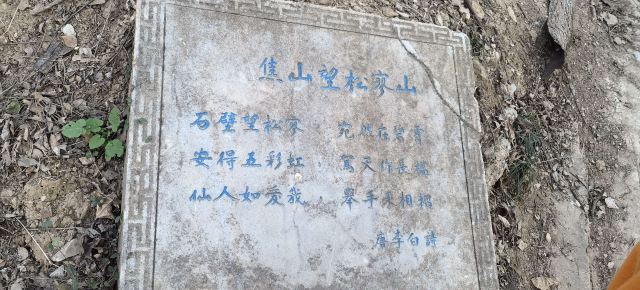 焦山望松寥山
石壁望松寥，宛然在碧霄
安得五彩虹，駕天作長橋
仙人如愛我，舉手來相招
唐李白詩